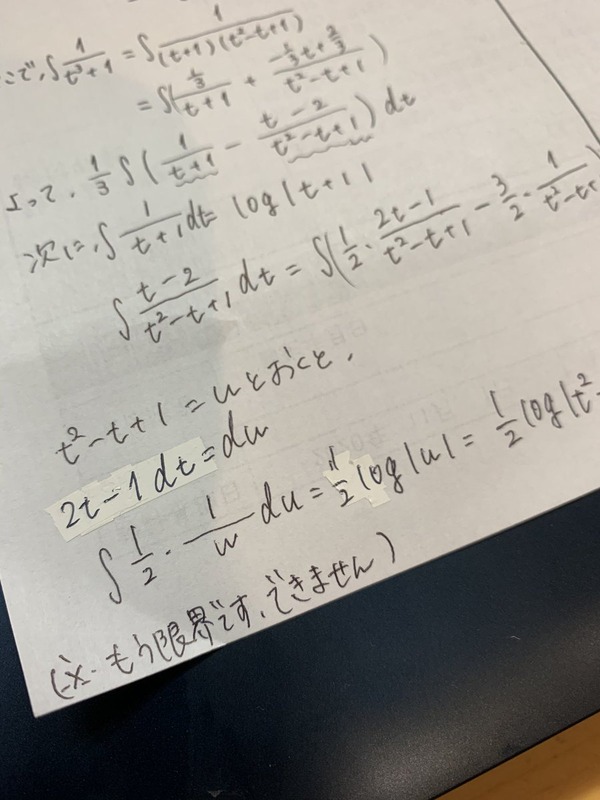 こで、∫1/(t³+1) = ∫1/((t+1)(t²-t+1))
= ∫((1/3)/(t+1) + (-1/3t+2/3)/(t²-t+1))
よって、1/3∫(1/(t+1) - (t-2)/(t²-t+1))dt
次に、∫1/(t+1)dt = log|t+1|
∫(t-2)/(t²-t+1)dt = ∫(1/2・(2t-1)/(t²-t+1) - 3/2・1/(t²-t+
t²-t+1=uとおくと、
2t-1dt=du
∫1/2・1/u du = 1/2log|u| = 1/2log|t²-
(※もう限界です、できません)